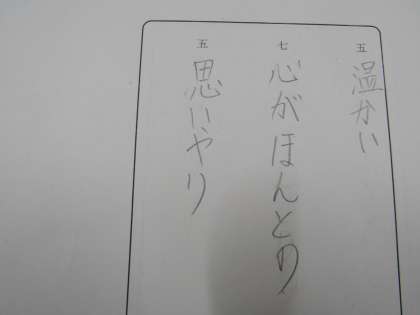 五 温かい
七 心がほんとの
五 思いやり